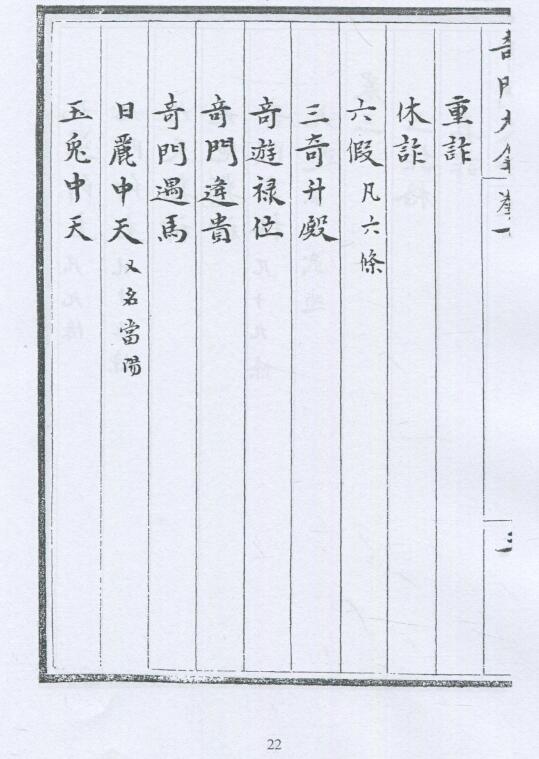 重詐
休詐
六假 凡六條
三奇升殿
奇遊禄位
奇門逢貴
奇門遇馬
日麗中天 又名當陽
玉兔中天
22